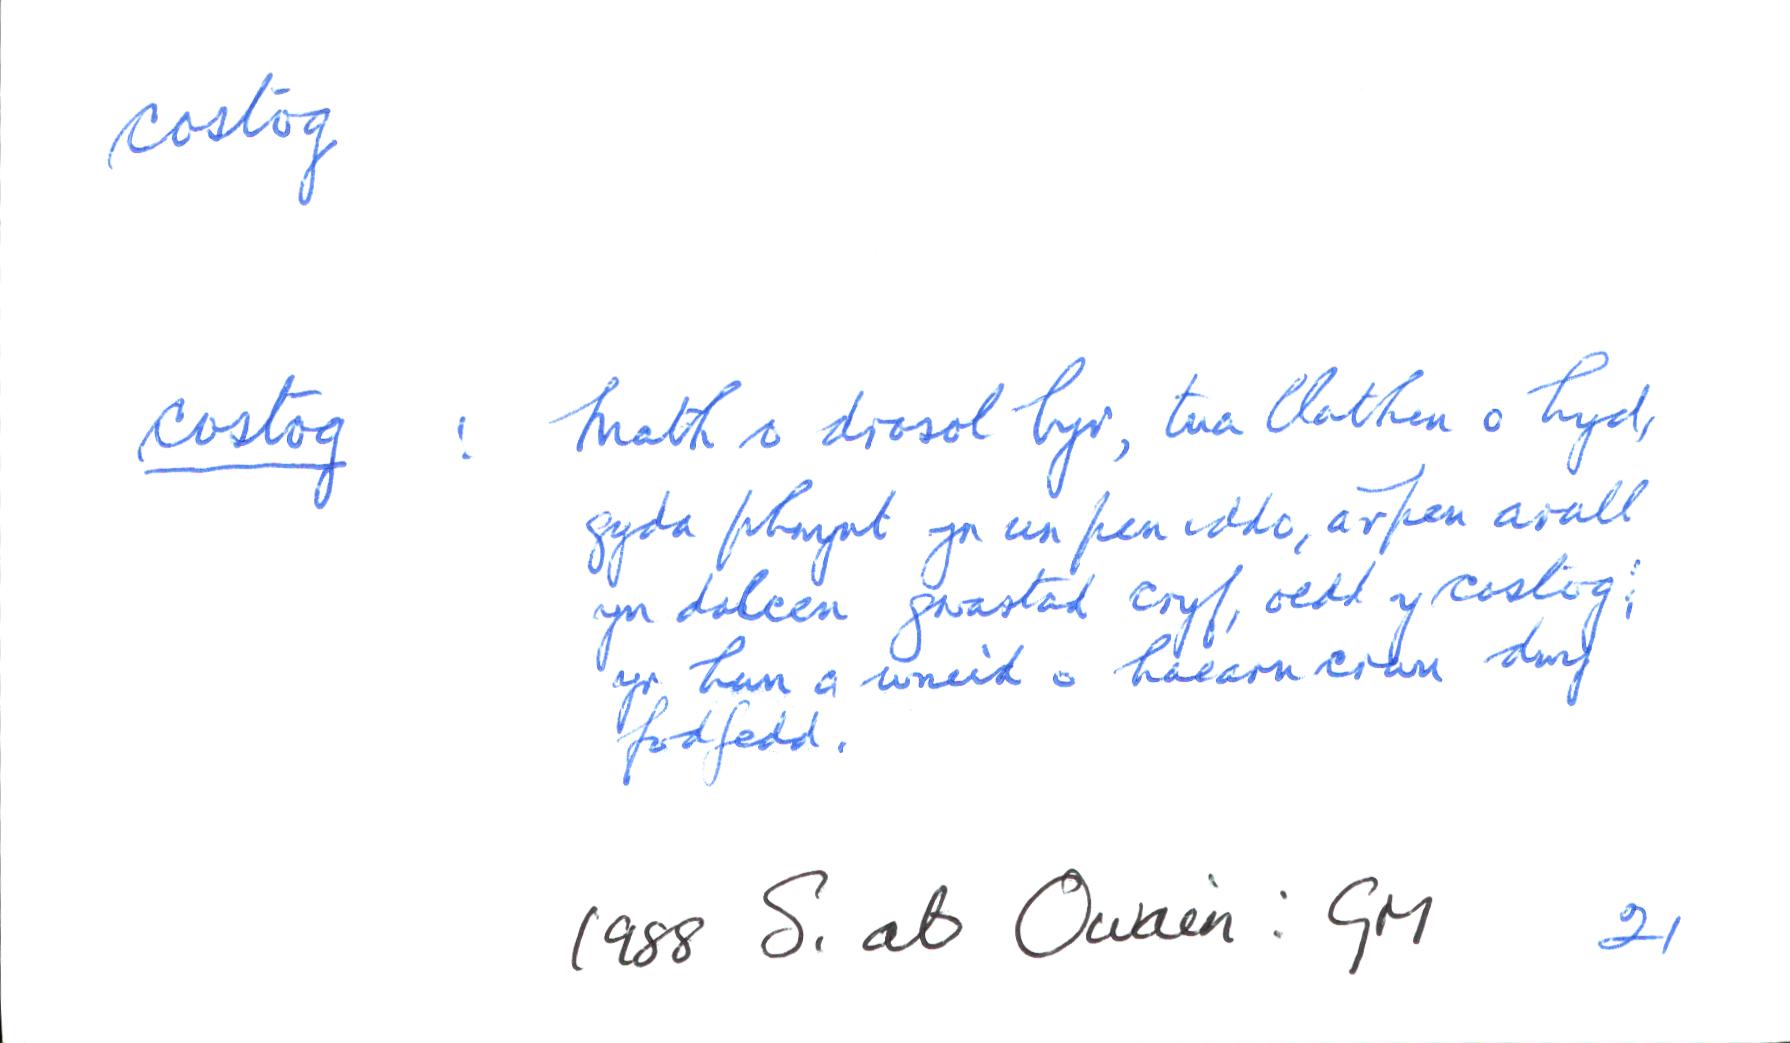 costog
costog : Math o drosol byr, tua llathen o hyd,
gyda phwynt yn un pen iddo, a'r pen arall
yn dalcen gwastad cryf, oedd y costog;
yr hwn a wneid o haearn crwn dwy
fodfedd.
1988 S. ab Owain : GM 21